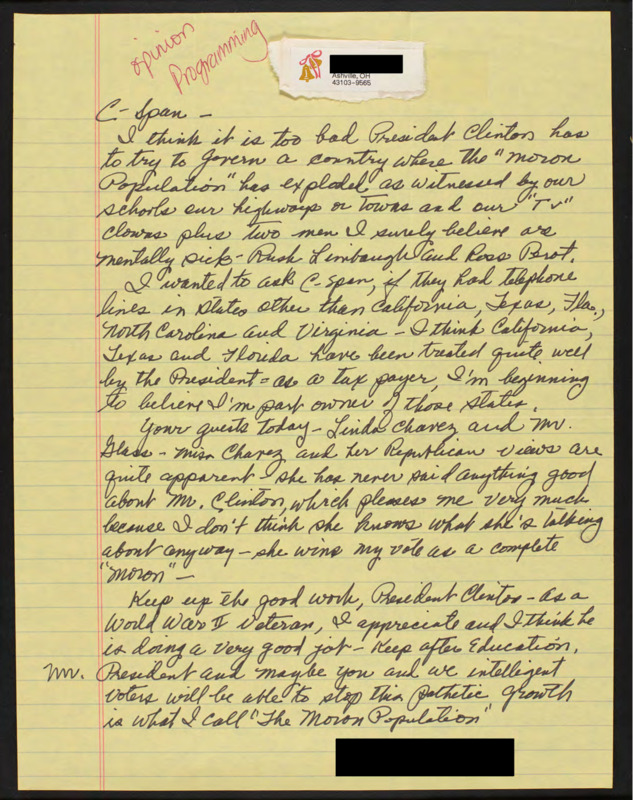 opinion
Programming
Ashville, OH
43103-9565
C-Span -
I think it is too bad President Clinton has
to try to govern a country where the "moron
Population" has exploded as witnessed by our
schools our highways or towns and our "TV"
clowns plus two men I surely believe are
mentally sick - Rush Limbaugh and Ross Perot.
I wanted to ask C-Span, if they had telephone
lines in states other than California, Texas, Fla.,
North Carolina and Virginia - I think California,
Texas and Florida have been treated quite well
by the President - as a tax payer, I'm beginning
to believe I'm part owner of those states.
Your guests today - Linda Chavez and Mr.
Glass - Miss Chavez and her Republican views are
quite apparent - she has never said anything good
about Mr. Clinton, which pleases me very much
because I don't think she knows what she's talking
about anyway - she wins my vote as a complete
"moron" -
Keep up the good work, President Clinton - as a
World War II Veteran, I appreciate and I think he
is doing a very good job - Keep after Education,
Mr. President and maybe you and we intelligent
voters will be able to stop this pathetic growth
is what I call "The Moron Population"